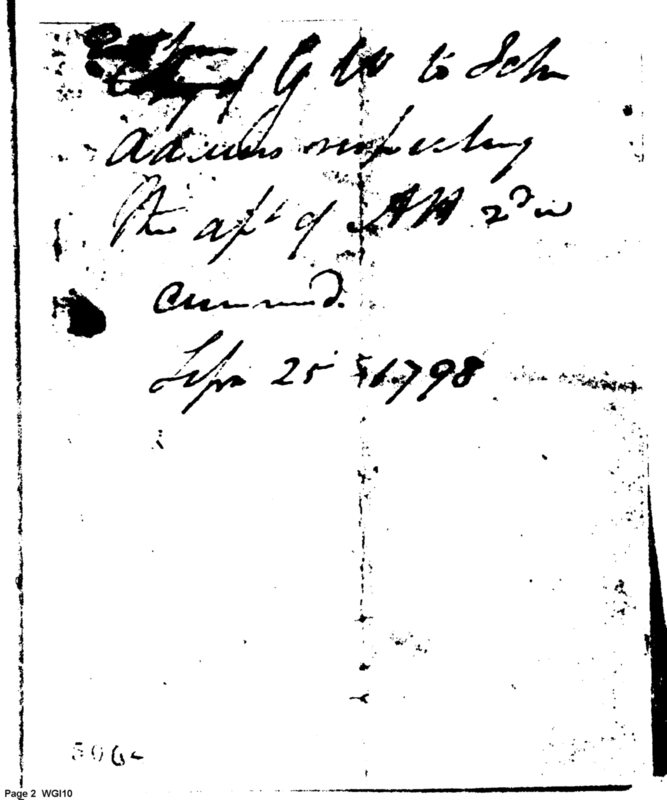 Copy of GW to John
Adams respecting
the apt of AH 2d in
command.
Sepr 25 1798
Page 2 WGI10